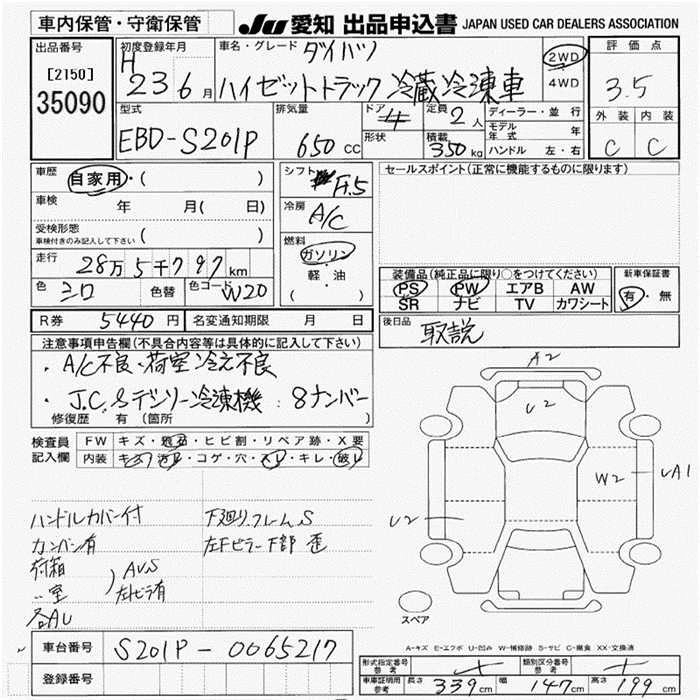 車内保管・守衛保管
JU 愛知 出品申込書 JAPAN USED CAR DEALERS ASSOCIATION
出品番号
[2150]
35090
初度登録年月
H 23 6月
車名・グレード ダイハツ
ハイゼットトラック 冷蔵冷凍車
2WD
4WD
評価点
3.5
外装 内装
C C
型式
EBD-S201P
排気量
650 CC
ドア 4
形状
定員 2人
積載 350 kg
ディーラー・並行
モデル年式 年
ハンドル 左・右
車歴 自家用・( )
車検 年 月( 日)
受検形態
車検付きのみ記入して下さい ( )
走行 28万5千797km
色 シロ 色替 色コード W20
シフト F.5
冷房 A/C
燃料
ガソリン
軽・油
( )
セールスポイント(正常に機能するものに限ります)
装備品(純正品に限り○をつけてください)
PS PW エアB AW
SR ナビ TV カワシート
新車保証書
有・無
R券 5440円 名変通知期限 月 日
後日品 取説
注意事項申告欄(不具合内容等は具体的に記入して下さい)
・A/C不良・荷室冷え不良
・J.C.Sデンソー冷凍機:8ナンバー
修復歴 有(箇所 )
検査員記入欄
FW キズ・飛石・ヒビ割・リペア跡・X要
内装 キズ・汚れ・コゲ・穴・スレ・キレ・破レ
ハンドルカバー付
カンバン有
荷箱
〃室
AUS
左ビラ有
各AU
下廻り.フレームS
左Fピラー下部 歪
A2
U2
W2
UA1
U2
スペア
A-キズ E-エクボ U-凹み W-補修跡 S-サビ C-腐食 XX-交換済
車台番号 S201P-0065217
登録番号
形式指定番号 参考
類別区分番号 参考
車庫証明用 参考 長さ 339cm 幅 147cm 高さ 199cm